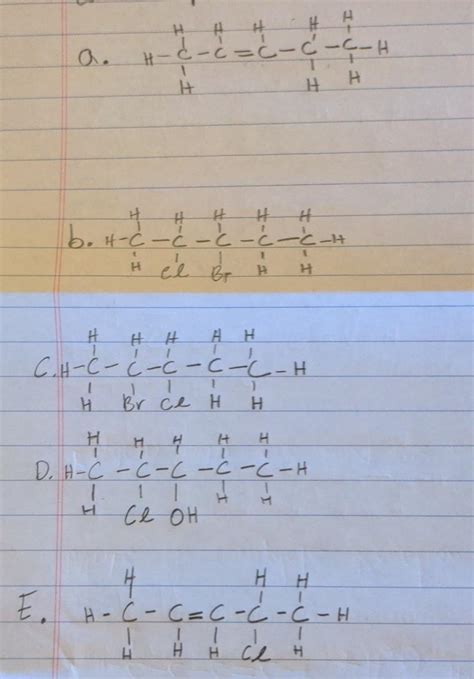 H H H H H
a. H-C-C=C-C-C-H
H H H
H H H H H
b. H-C-C-C-C-C-H
H Cl Br H H
H H H H H
C. H-C-C-C-C-C-H
H Br Cl H H
H H H H H
D. H-C-C-C-C-C-H
H Cl OH H H
H H H
E. H-C-C=C-C-C-H
H H H Cl H